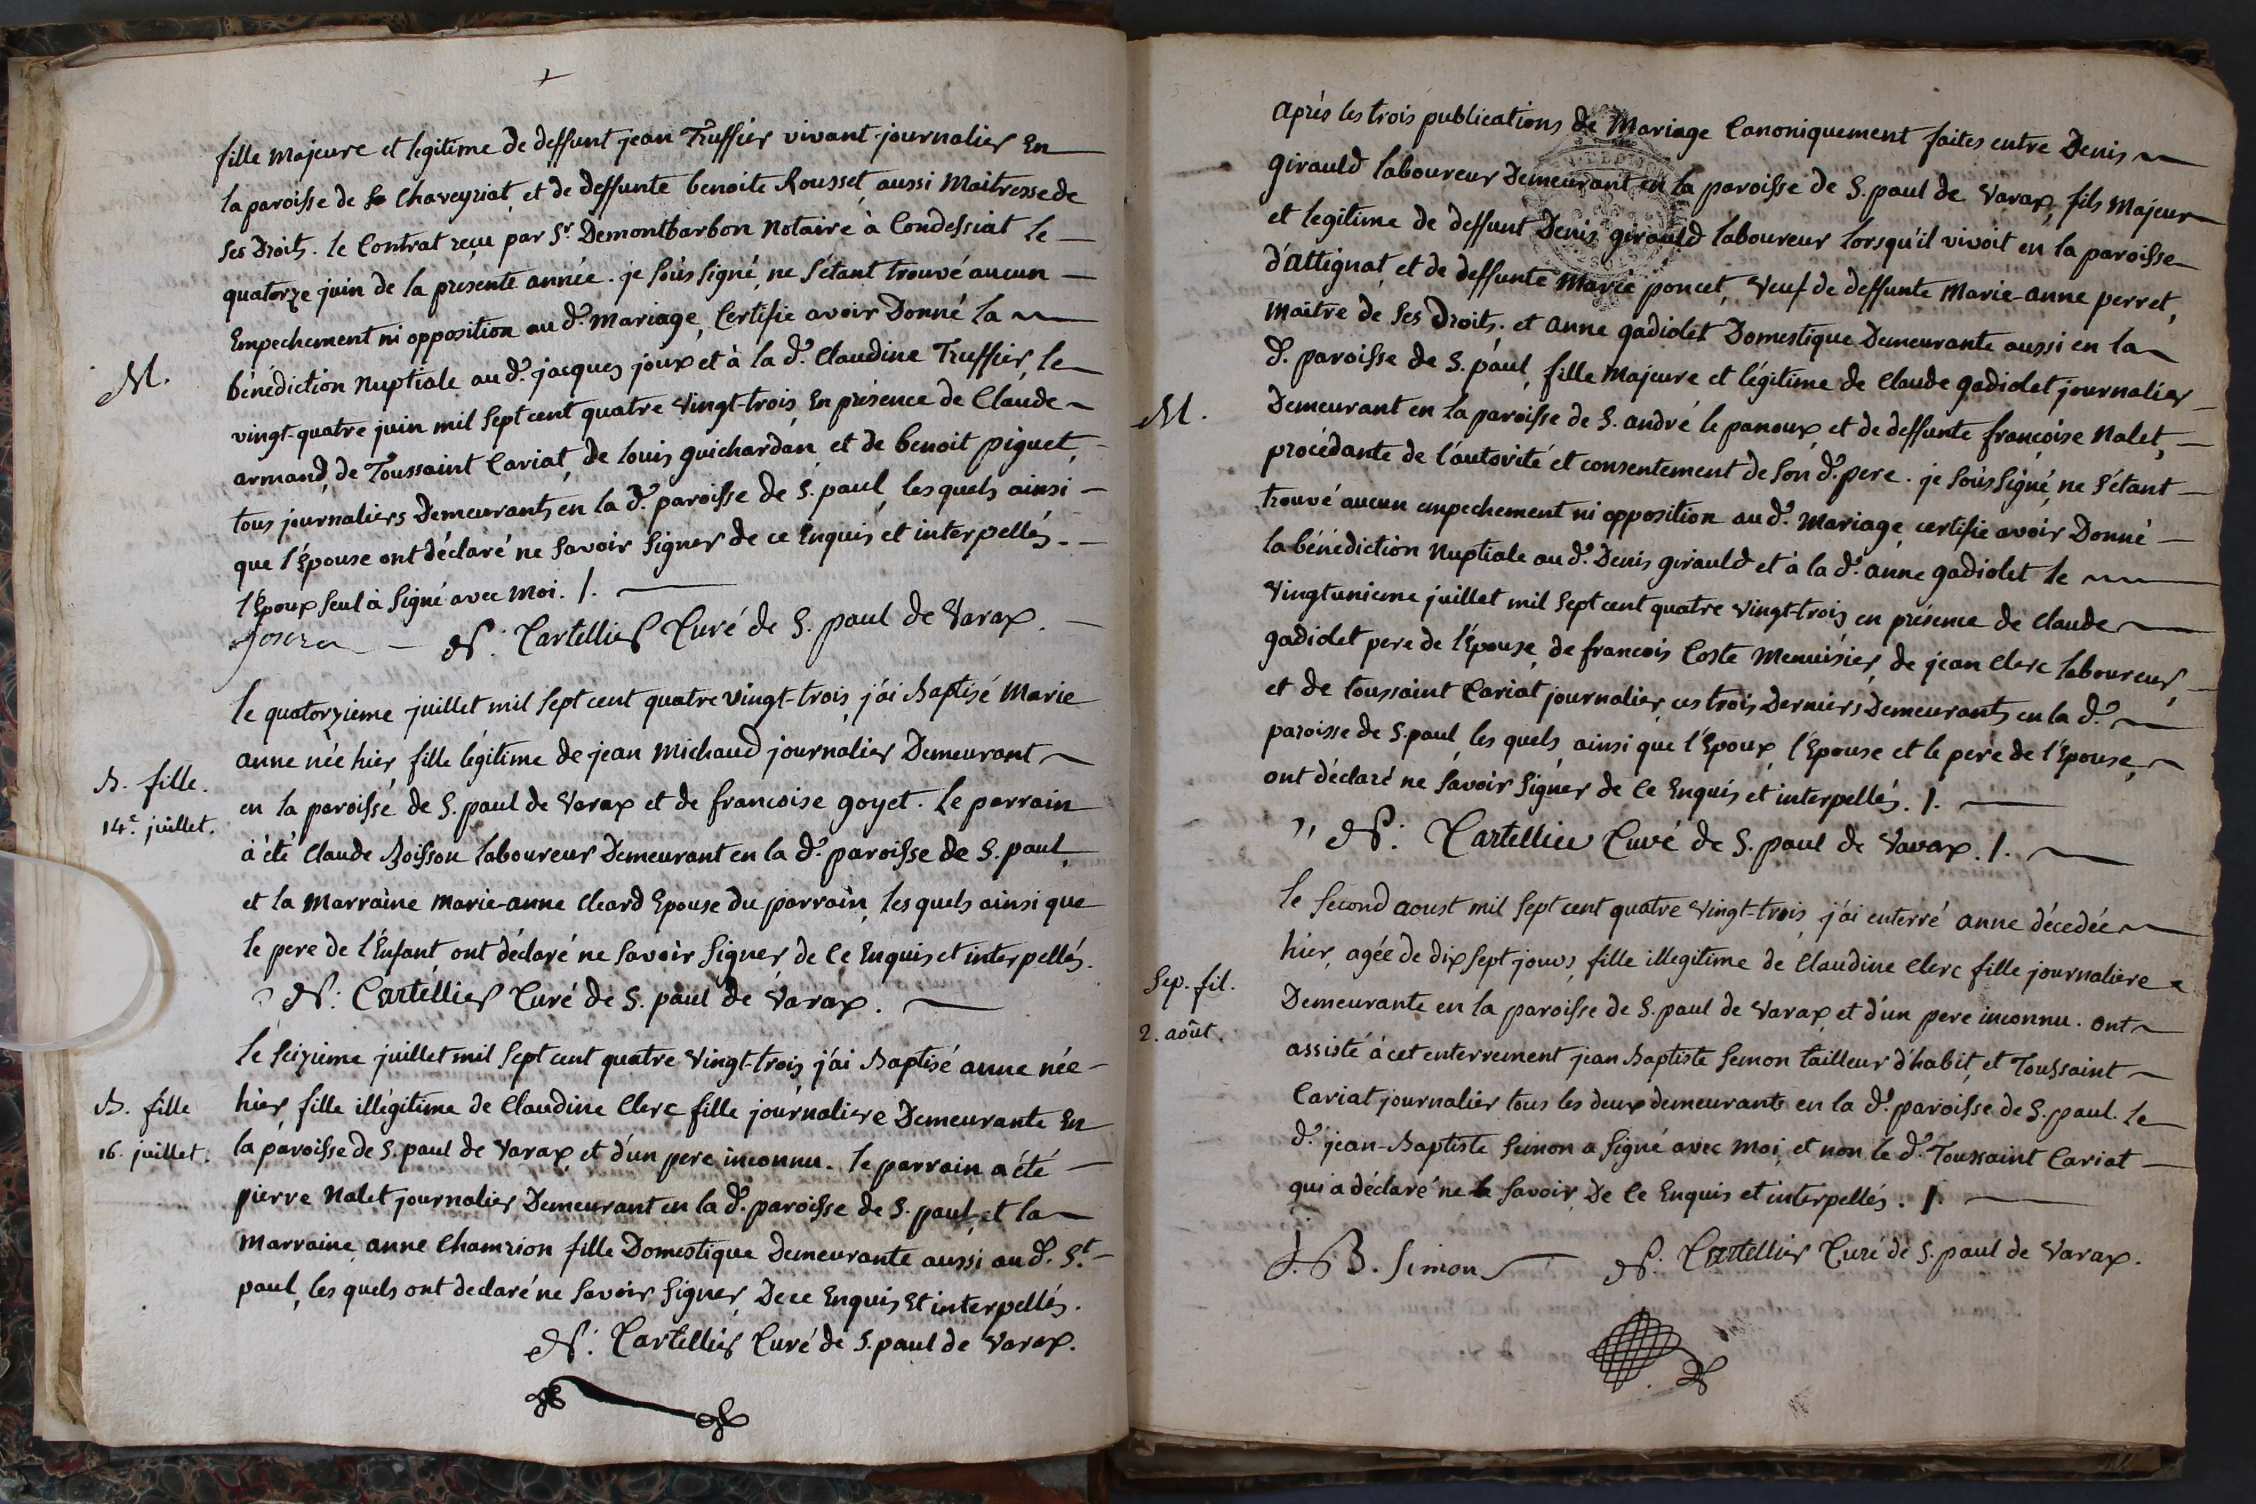 fille Majeure et legitime de deffunt jean Truffier vivant journalier En
la paroisse de Chaveyriat, et de deffunte benoite Rousset, aussi Maitresse de
ses Droits. le Contrat reçu par Sr. Demontbarbon Notaire à Condessiat le
quatorze juin de la presente année. je soussigné, ne s'étant trouvé aucun
Empechement ni opposition au d. Mariage, Certifie avoir Donné la
M.
bénédiction Nuptiale au d. jacques joux et à la d. Claudine Truffier, le
vingt-quatre juin mil sept cent quatre vingt-trois, En présence de Claude
armand, de Toussaint Cariat, de louis guichardan, et de benoit piguet,
tous journaliers Demeurants en la d. paroisse de S. paul, les quels ainsi
que l'Epouse ont déclaré ne savoir signer de ce Enquis et interpellés.
l'Epoux seul à signé avec Moi. /.
N. Cartellier Curé de S. paul de Varax.
le quatorzieme juillet mil sept cent quatre vingt-trois, j'ai Baptisé Marie
anne née hier, fille légitime de jean Michaud journalier Demeurant
B. fille.
en la paroisse de S. paul de Varax et de francoise goyet. le parrain
14e. juillet.
à été Claude Boisson laboureur Demeurant en la d. paroisse de S. paul,
et la Marraine Marie-anne Cleard Epouse du parrain, les quels ainsi que
le pere de l'Enfant, ont déclaré ne savoir signer de Ce Enquis et interpellés.
N. Cartellier Curé de S. paul de Varax.
le seizieme juillet mil sept cent quatre vingt-trois, j'ai Baptisé anne née
B. fille
hier, fille illégitime de Claudine Clerc fille journaliere Demeurante En
16. juillet.
la paroisse de S. paul de Varax, et d'un pere inconnu. le parrain a été
pierre Nalet journalier Demeurant en la d. paroisse de S. paul, et la
Marraine anne Chamrion fille Domestique demeurante aussi au d. St.
paul, les quels ont declaré ne savoir signer De ce Enquis Et interpellés.
N. Cartellier Curé de S. paul de Varax.
Après les trois publications de Mariage Canoniquement faites entre Denis
girauld laboureur Demeurant en la paroisse de S. paul de Varax, fils Majeur
et legitime de deffunt Denis girauld laboureur lorsqu'il vivoit en la paroisse
d'attignat, et de deffunte Marie poncet, Veuf de deffunte Marie-anne perret,
Maitre de ses Droits. et anne gadiolet Domestique Demeurante aussi en la
d. paroisse de S. paul, fille Majeure et légitime de Claude gadiolet journalier
M.
Demeurant en la paroisse de S. andré le panoux, et de deffunte françoise Nalet,
procédante de l'autorité et consentement de son d. pere. je soussigné, ne s'étant
trouvé aucun empechement ni opposition au d. Mariage, certifie avoir Donné
la bénédiction Nuptiale au d. Denis girauld et à la d. anne gadiolet le
vingtunieme juillet mil sept cent quatre vingt-trois en présence de Claude
gadiolet pere de l'Epouse, de francois Coste Menuisier, de jean Clerc laboureur,
et de toussaint Cariat journalier, ces trois Derniers Demeurants en la d.
paroisse de S. paul, les quels, ainsi que l'Epoux, l'Epouse et le pere de l'Epouse,
ont déclaré ne savoir signer de Ce Enquis et interpellés. /.
N. Cartellier Curé de S. paul de Varax. /.
le second aoust mil sept cent quatre vingt-trois, j'ai enterré anne décedée
hier, agée de dix sept jours, fille illegitime de Claudine Clerc fille journaliere
Sep. fil.
Demeurante en la paroisse de S. paul de Varax, et d'un pere inconnu. ont
2. août.
assisté à cet enterrement jean Baptiste Semon tailleur d'habit, et Toussaint
Cariat journalier tous les deux demeurants en la d. paroisse de S. paul. le
d. jean-Baptiste Semon a signé avec Moi, et non le d. Toussaint Cariat
qui a déclaré ne savoir, De Ce Enquis et interpellés. /.
J. B. Simon N. Cartellier Curé de S. paul de Varax.